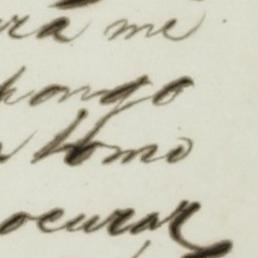 ará me
pongo
tomo
ocurar